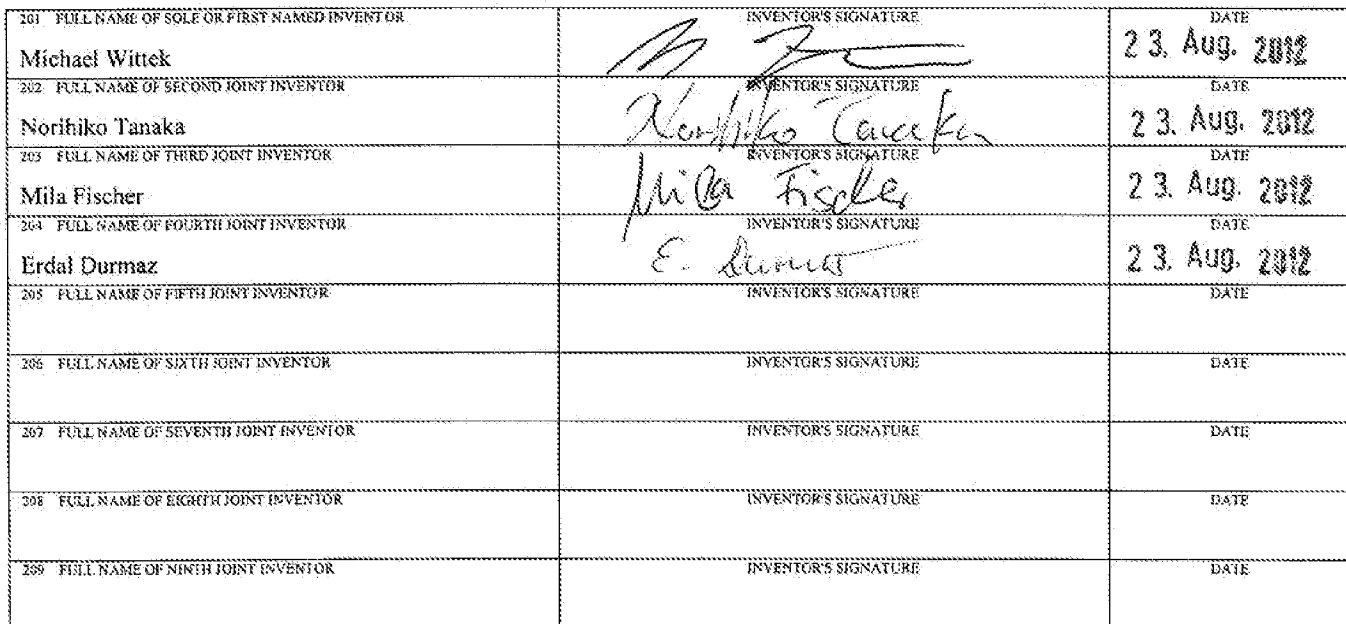 201 FULL NAME OF SOLE OR FIRST NAMED INVENTOR INVENTOR'S SIGNATURE DATE
Michael Wittek 23. Aug. 2012
202 FULL NAME OF SECOND JOINT INVENTOR INVENTOR'S SIGNATURE DATE
Norihiko Tanaka Norihiko Tanaka 23. Aug. 2012
203 FULL NAME OF THIRD JOINT INVENTOR INVENTOR'S SIGNATURE DATE
Mila Fischer Mila Fischer 23. Aug. 2012
204 FULL NAME OF FOURTH JOINT INVENTOR INVENTOR'S SIGNATURE DATE
Erdal Durmaz E. 23. Aug. 2012
205 FULL NAME OF FIFTH JOINT INVENTOR INVENTOR'S SIGNATURE DATE
206 FULL NAME OF SIXTH JOINT INVENTOR INVENTOR'S SIGNATURE DATE
207 FULL NAME OF SEVENTH JOINT INVENTOR INVENTOR'S SIGNATURE DATE
208 FULL NAME OF EIGHTH JOINT INVENTOR INVENTOR'S SIGNATURE DATE
209 FULL NAME OF NINTH JOINT INVENTOR INVENTOR'S SIGNATURE DATE